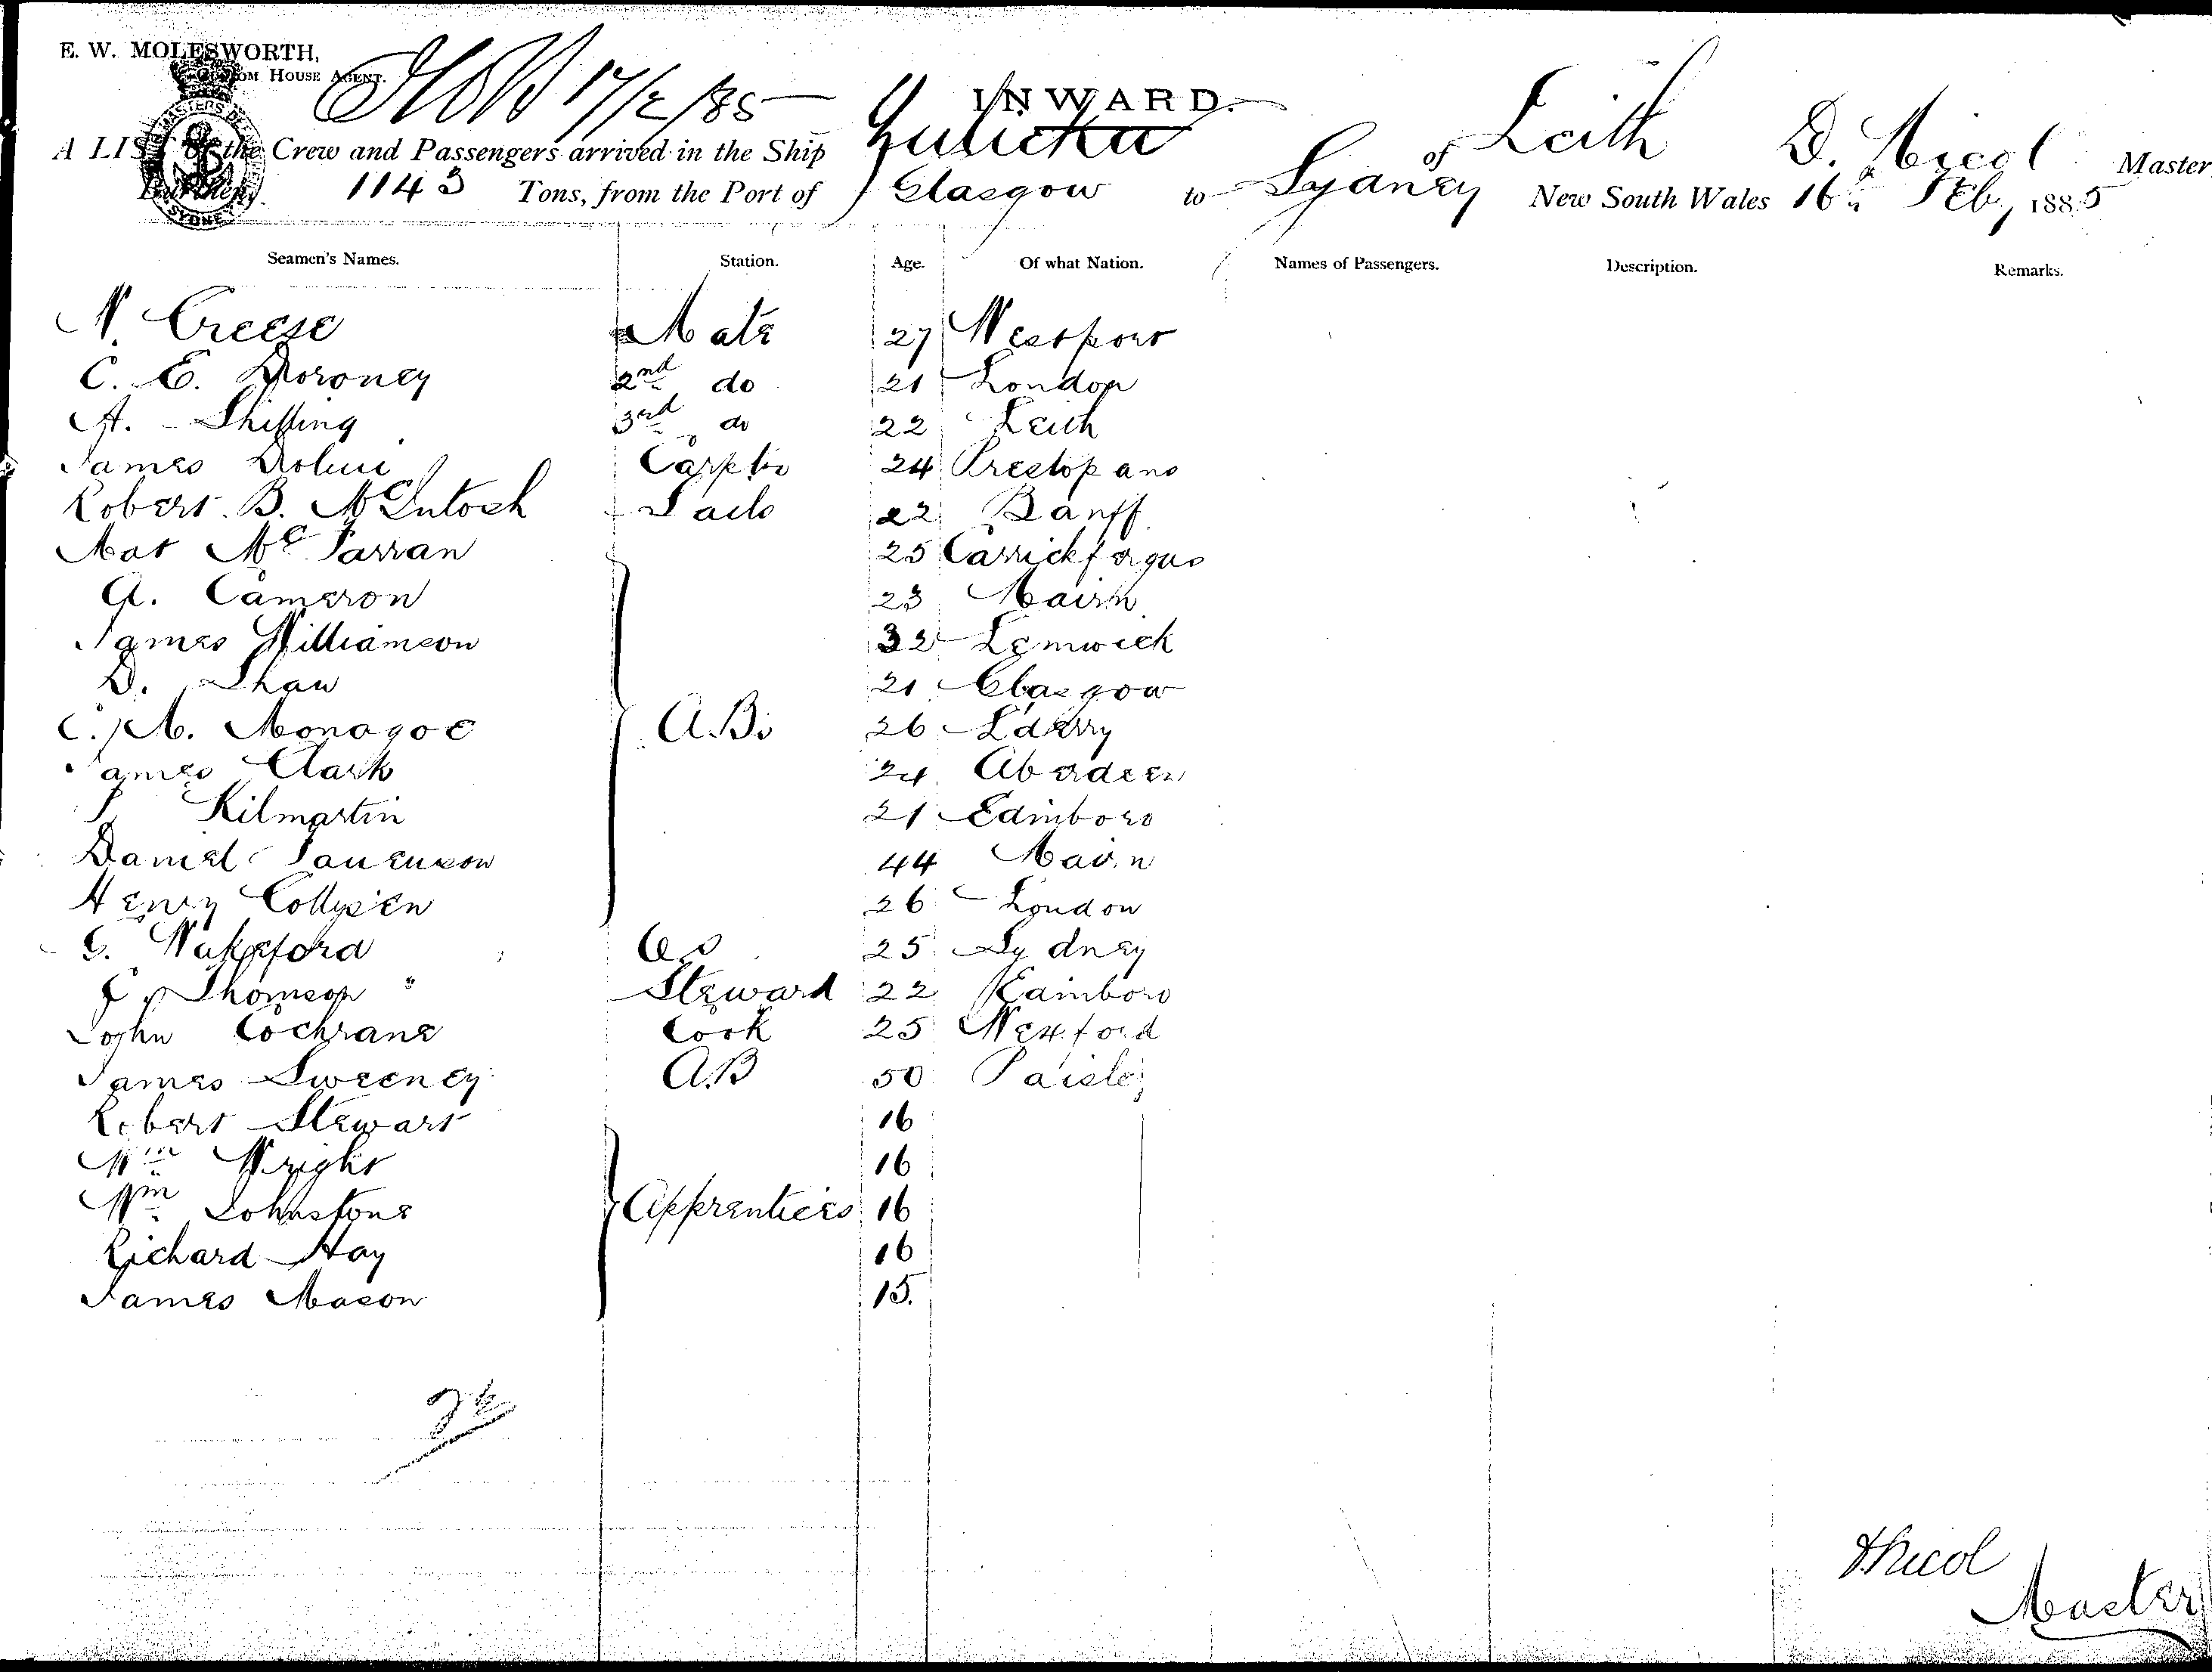 E. W. MOLESWORTH,
CUSTOM HOUSE AGENT.
17/2/85
INWARD.
A LIST of the Crew and Passengers arrived in the Ship Zuleika of Leith D. Nicol Master,
Burthen, 1143 Tons, from the Port of Glasgow to Sydney New South Wales 16th Feby 1885
Seamen's Names. Station. Age. Of what Nation. Names of Passengers. Description. Remarks.
W. Creese Mate 27 Westport
C. E. Doroney 2nd do 21 London
A. Shilling 3rd do 22 Leith
James 24 Prestopans
Robert B. McIntosh Sails 22 Banff
Mat McParran 25 Carrickfergus
A. Cameron 23 Nairn
James Williamson 32 Lerwick
D. Shaw 21 Glasgow
C. M. A.Bs 26 Lderry
James Clark 24 Aberdeen
Kilmartin 21 Edinboro
Daniel 44 Nairn
Henry 26 London
Wakeford OS 25 Sydney
Thomson Steward 22 Edinboro
John Cochrane Cook 25 Wexford
James Sweeney A.B 50 Paisley
Robert Stewart 16
Wm Wright 16
Wm Johnstone Apprentices 16
Richard Hay 16
James Mason 15.
D Nicol
Master